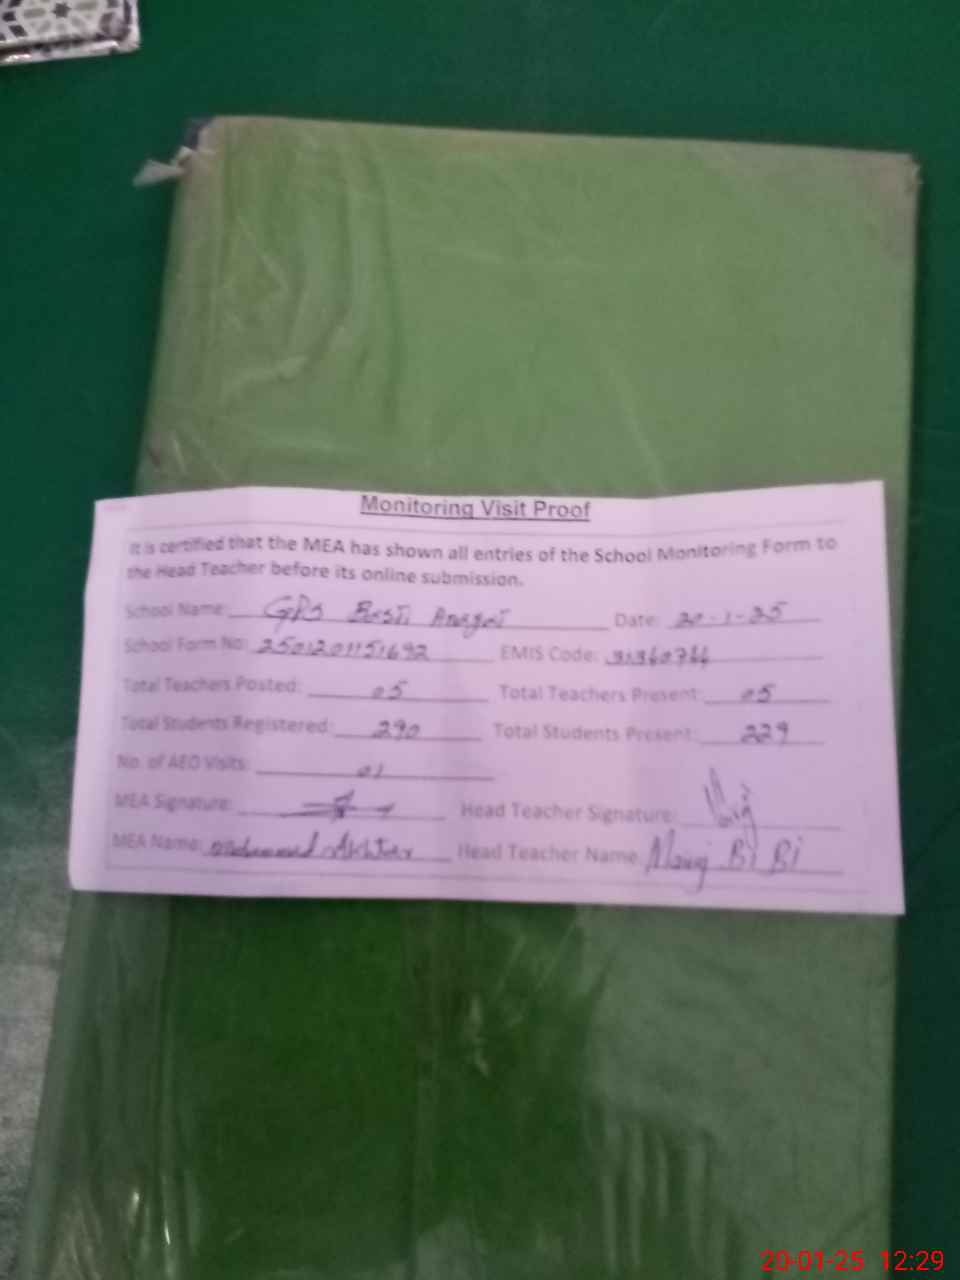 Monitoring Visit Proof
It is certified that the MEA has shown all entries of the School Monitoring Form to
the Head Teacher before its online submission.
School Name: GPS Basti Date: 20-1-25
School Form No: 2501201151692 EMIS Code: 31360766
Total Teachers Posted: 05 Total Teachers Present: 05
Total Students Registered: 290 Total Students Present: 229
No. of AEO Visits: 01
MEA Signature: Head Teacher Signature:
MEA Name: Akhter Head Teacher Name: Bi Bi
20-01-25 12:29